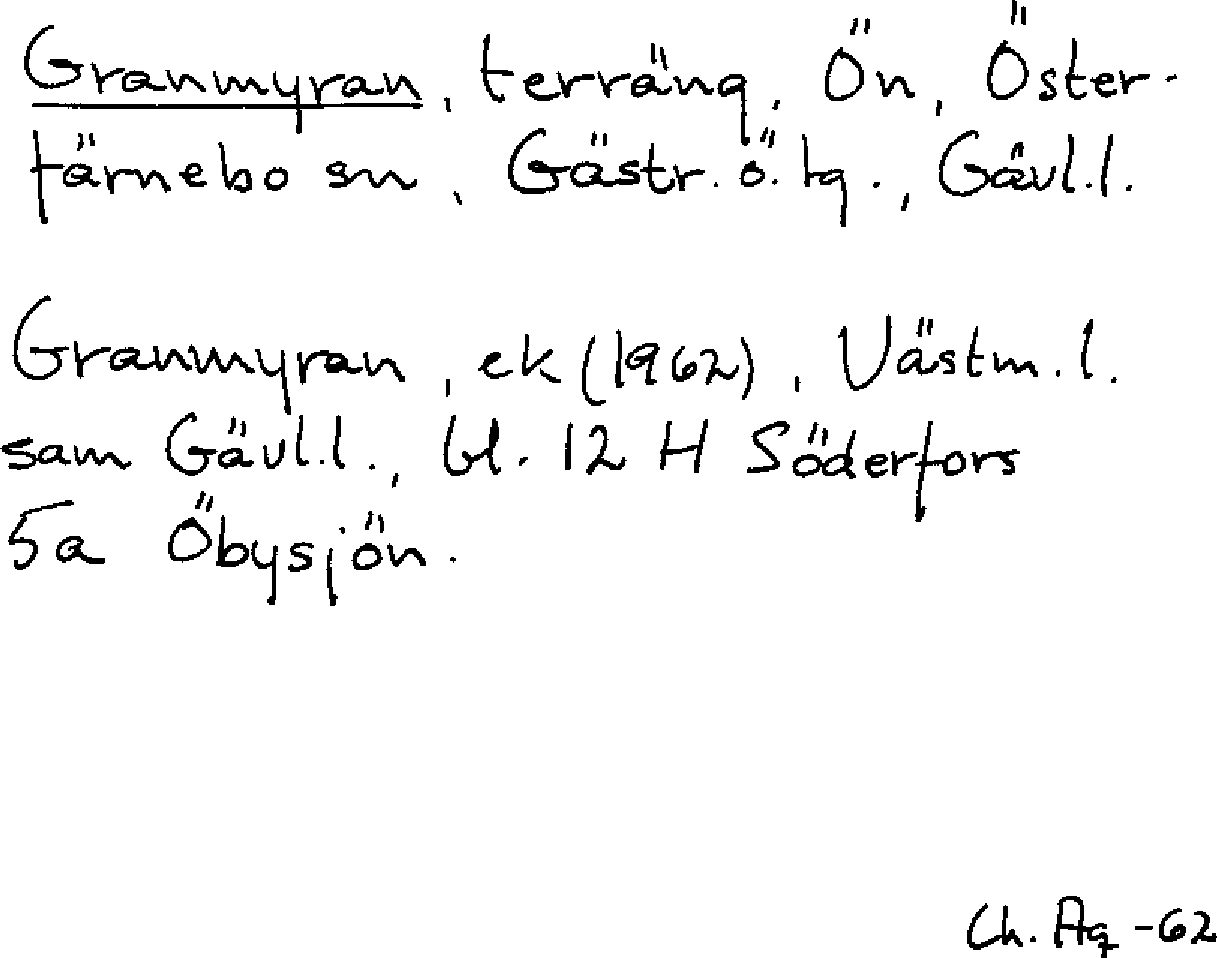 Granmyran, terräng, Ön, Öster-
färnebo sn, Gästr. ö. tg., Gävl.l.
Granmyran, ek (1962), Västm. l.
sam Gävl.l., bl. 12 H Söderfors
5a Öbysjön.
Ch. Ag -62